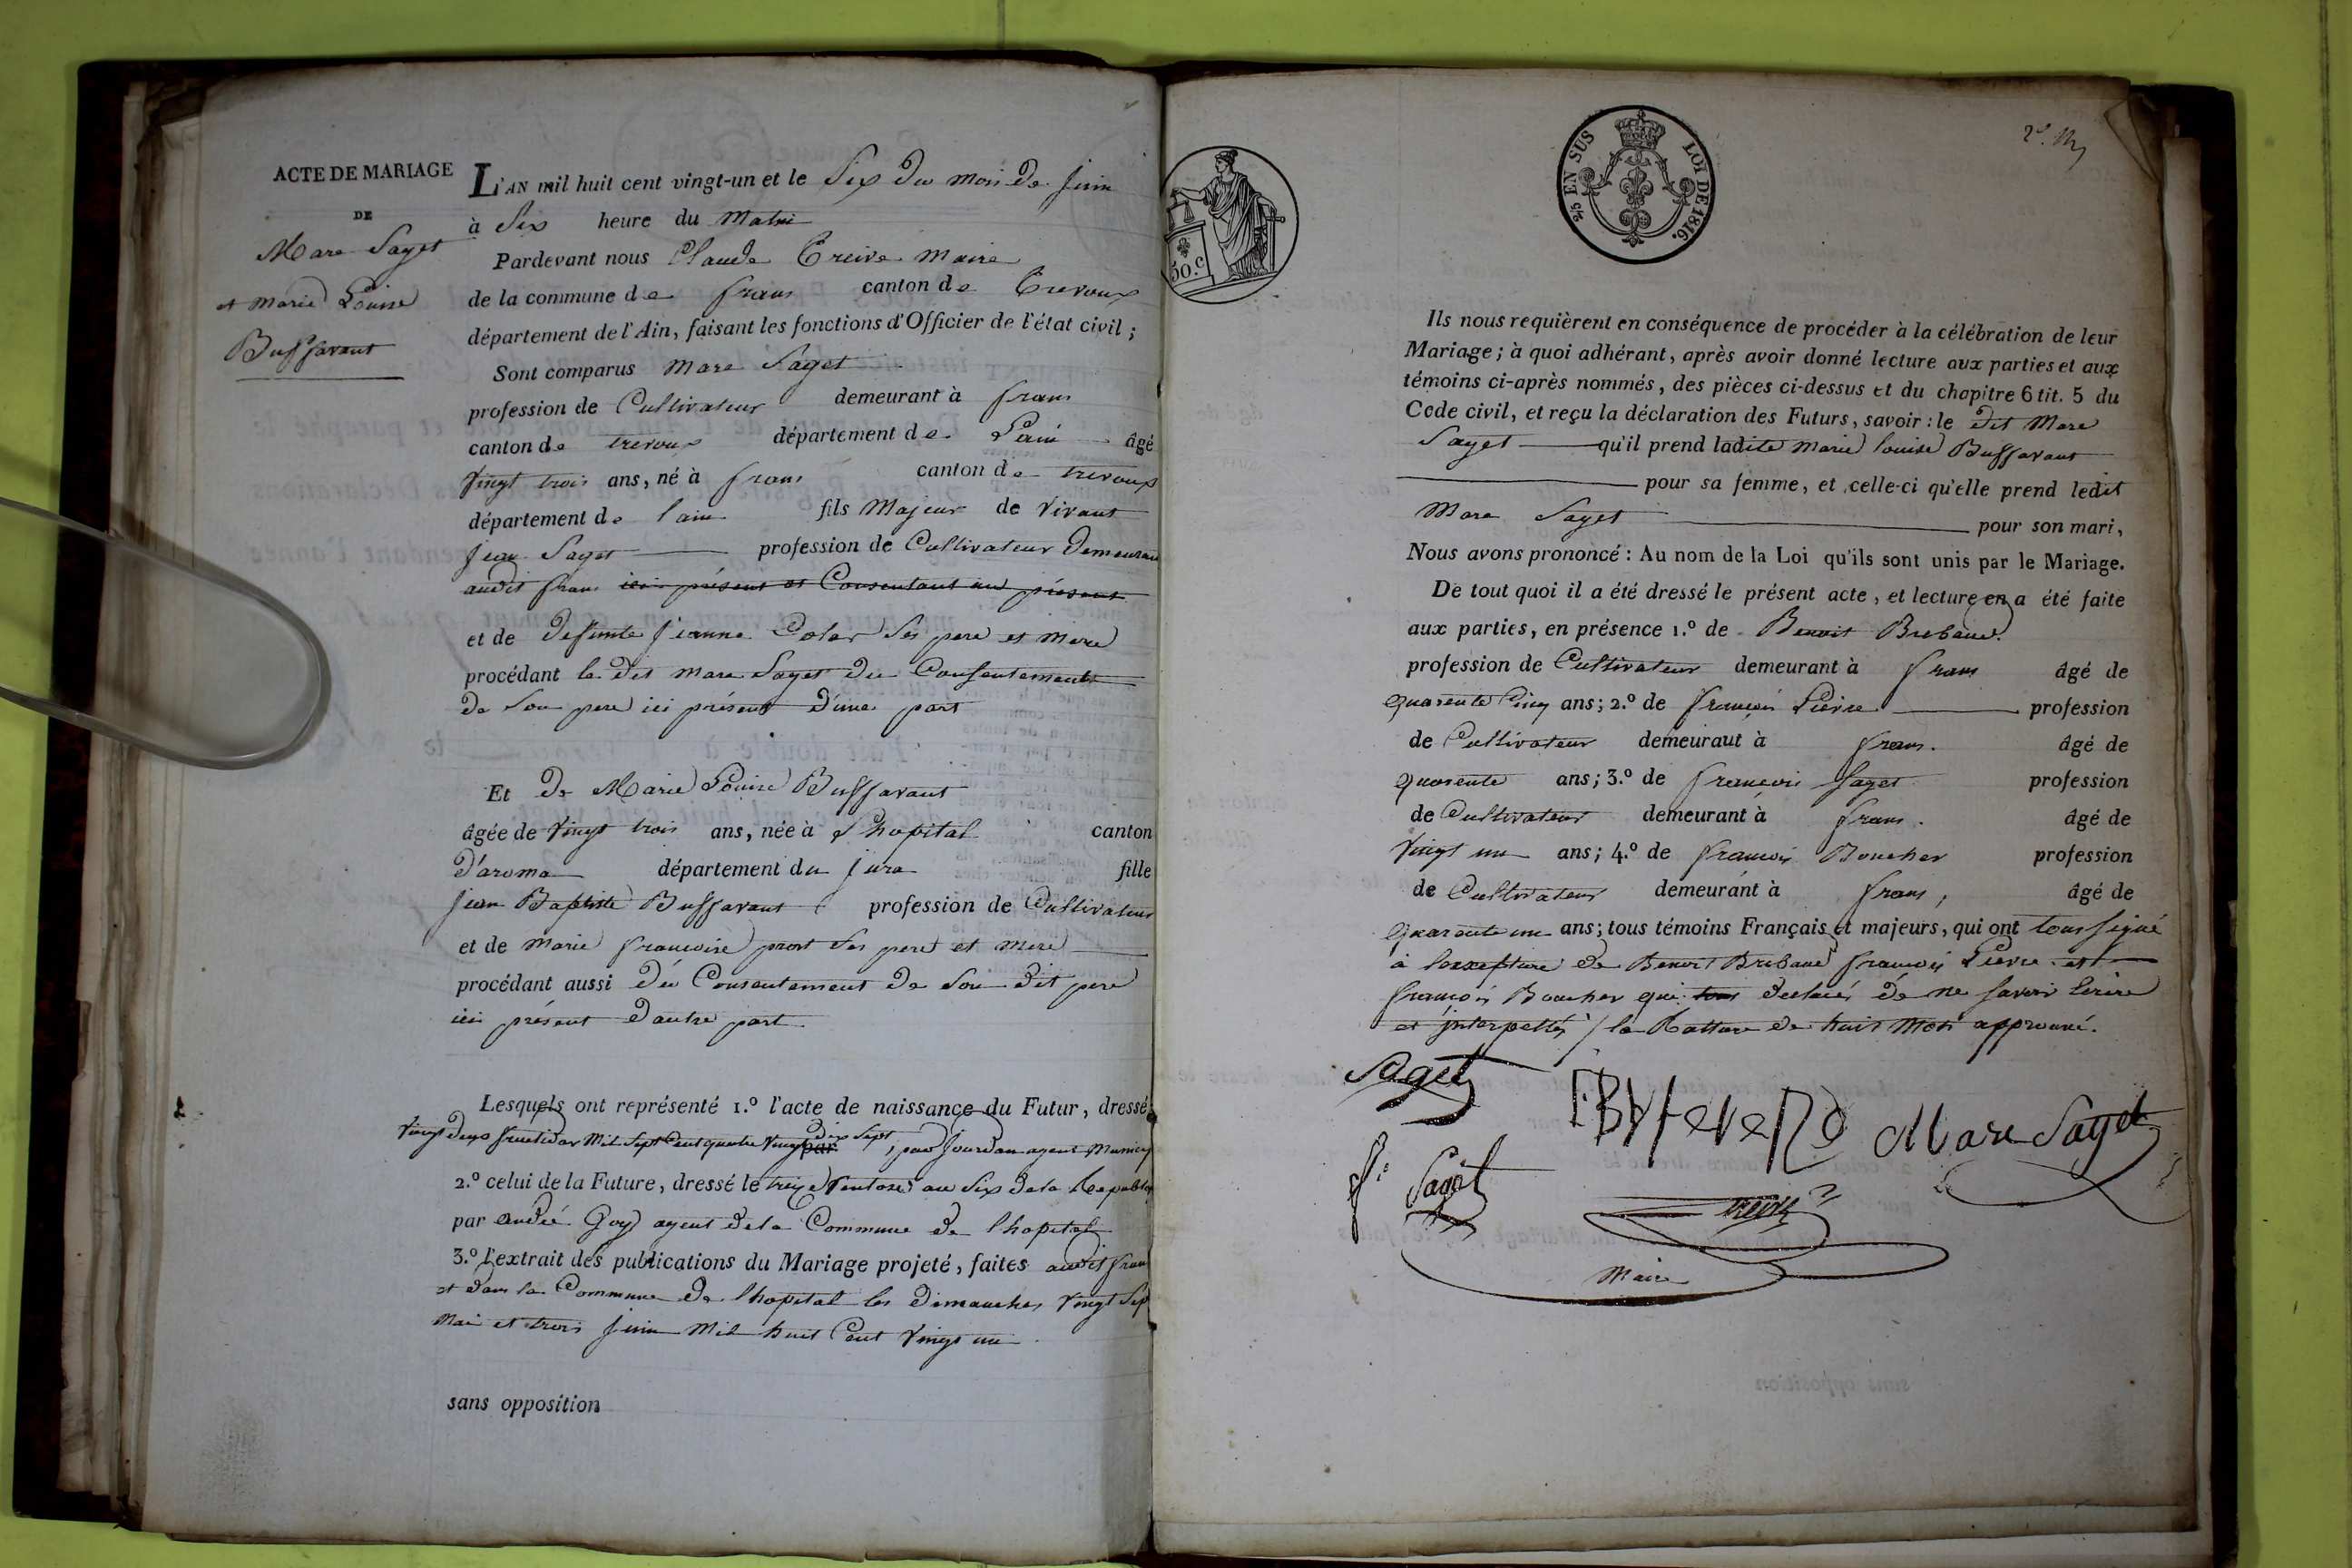 ACTE DE MARIAGE
DE
Marc Saget
et marie Louise
Buffavant
L'AN mil huit cent vingt-un et le Six du mois de juin
à Six heure du Matin
Pardevant nous Claude Treive maire
de la commune de frans canton de Trevoux
département de l'Ain, faisant les fonctions d'Officier de l'état civil ;
Sont comparus Marc Saget
profession de Cultivateur demeurant à frans
canton de trevoux département de Lain âgé
Vingt trois ans, né à frans canton de trevoux
département de lain fils Majeur de Vivant
jean Saget profession de Cultivateur Demeurant
audit frans ici présent et Consentant au présent
et de Defunte jeanne Ses pere et Mere
procédant le dit marc Saget du Consentement
de Son pere ici présent d'une part
Et de Marie Louise Buffavant
âgée de Vingt trois ans, née à L'hopital canton
D'aroma département du jura fille
jean Baptiste Buffavant profession de Cultivateur
et de marie francoise prost Ses pere et mere
procédant aussi du Consentement de Son dit pere
ici présent d'autre part
Lesquels ont représenté 1.º l'acte de naissance du Futur, dressé
Vingt deux fructidor Mil Sept Cent quatre Vingt dix Sept, par jourdan agent Municip
2.º celui de la Future, dressé le treize Ventose au Six de la Republ
par André Goy agent de la Commune de l'hopital
3.º l'extrait des publications du Mariage projeté, faites audit frans
et dans la Commune de l'hopital les dimanches Vingt Sept
Mai et trois juin Mil huit Cent Vingt un
sans opposition
50.c
2/5 EN SUS LOI DE 1816.
Ils nous requièrent en conséquence de procéder à la célébration de leur
Mariage ; à quoi adhérant, après avoir donné lecture aux parties et aux
témoins ci-après nommés, des pièces ci-dessus et du chapitre 6 tit. 5 du
Code civil, et reçu la déclaration des Futurs, savoir : le dit Marc
Saget qu'il prend ladite Marie louise Buffavant
pour sa femme, et celle-ci qu'elle prend ledit
Marc Saget pour son mari,
Nous avons prononcé : Au nom de la Loi qu'ils sont unis par le Mariage.
De tout quoi il a été dressé le présent acte, et lecture en a été faite
aux parties, en présence 1.º de Benoit Brebant
profession de Cultivateur demeurant à frans âgé de
quarente Cinq ans ; 2.º de françois Lievre profession
de Cultivateur demeuraut à frans. âgé de
quarente ans ; 3.º de françois Saget profession
de Cultivateur demeurant à frans. âgé de
Vingt un ans ; 4.º de françois Boucher profession
de Cultivateur demeurant à frans, âgé de
quarante un ans ; tous témoins Français et majeurs, qui ont tous signé
à de Benoit Brebant françois Lievre et
françois Boucher qui tous declarés de ne Savoir Ecrire
et interpellés / la Ratture de huit Mots approuvé.
Saget
Marc Saget
f: Saget
treive
Maire